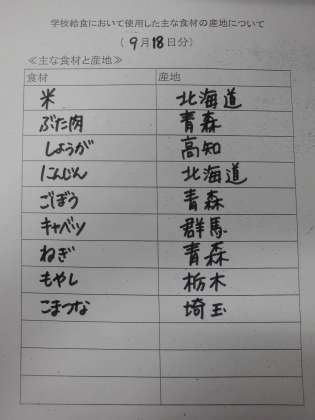 学校給食において使用した主な食材の産地について
(9月18日分)
≪主な食材と産地≫
食材 産地
米 北海道
ぶた肉 青森
しょうが 高知
にんじん 北海道
ごぼう 青森
キャベツ 群馬
ねぎ 青森
もやし 栃木
こまつな 埼玉